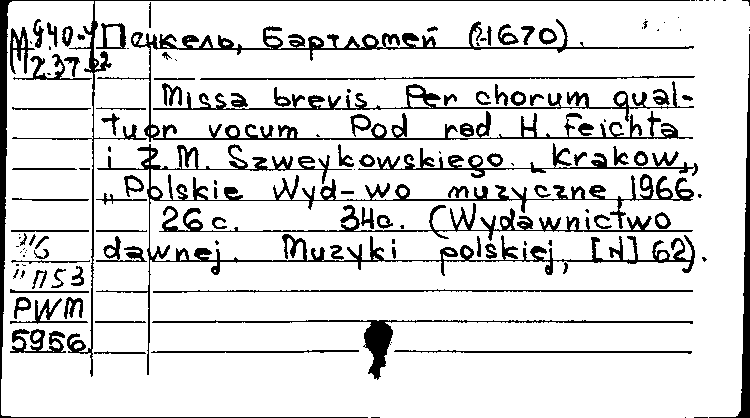 М940-У Пенкель, Бартломей (?-1670).
237 62
Missa brevis. Per chorum qual-
tuor vocum. Pod red. H. Feichta
i Z.M. Szweykowskiego. [Krakow],
"Polskie Wyd-wo muzyczne, 1966.
26с. 34с. (Wydawnictwo
dawnej. Muzyki polskiej, [N] 62).
П53
PWM
5956.